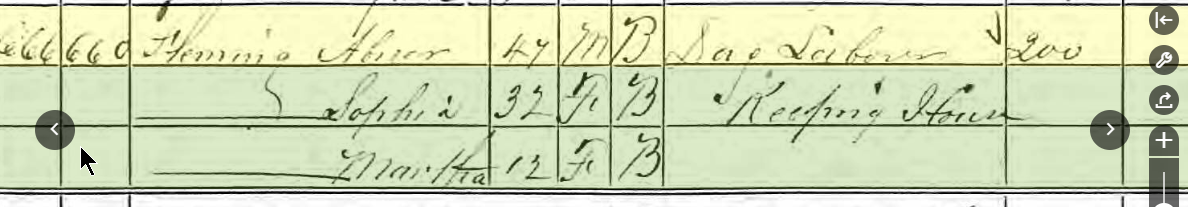 666 660 Fleming Abner 47 M B Day Laborer 200
Sophia 32 F B Keeping House
Martha 12 F B